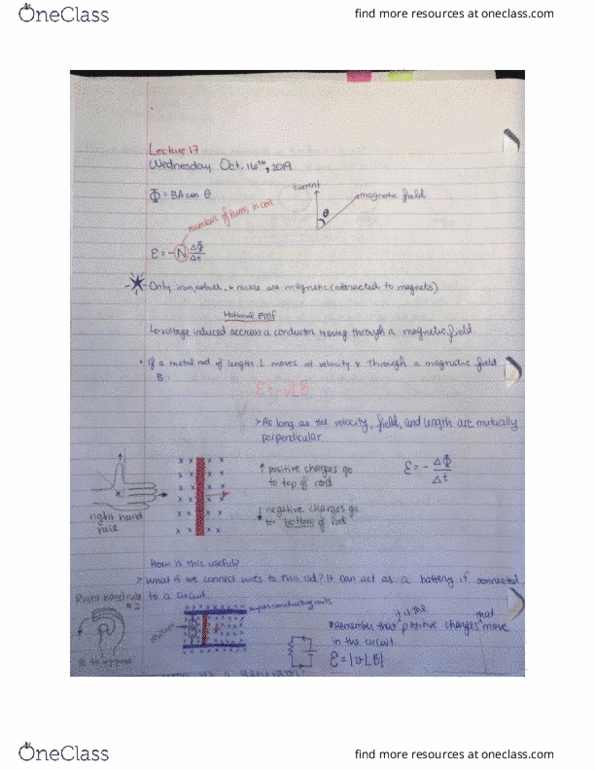 OneClass
find more resources at oneclass.com
Lecture 17
Wednesday Oct. 16th, 2019
Φ = BA cos θ
current
magnetic field
θ
number of turns in coil
ε = -N ΔΦ/Δt
Only iron, & nickle are magnetic (attracted to magnets)
Motional Emf
↳ voltage induced across a conductor moving through a magnetic field.
• If a metal rod of length L moves at velocity v through a magnetic field
B:
ε = -vLB
> As long as the velocity, field, and length are mutually
perpendicular.
↑ positive charges go
to top of rod
ε = - ΔΦ/Δt
↓ negative charges go
to bottom of rod
right hand
rule
How is this useful?
> What if we connect wires to this rod? It can act as a battery if connected
to a circuit.
Right hand rule
#2
it is the that
*Remember that positive charges move
in the circuit.
ε = |vLB|
OneClass
find more resources at oneclass.com